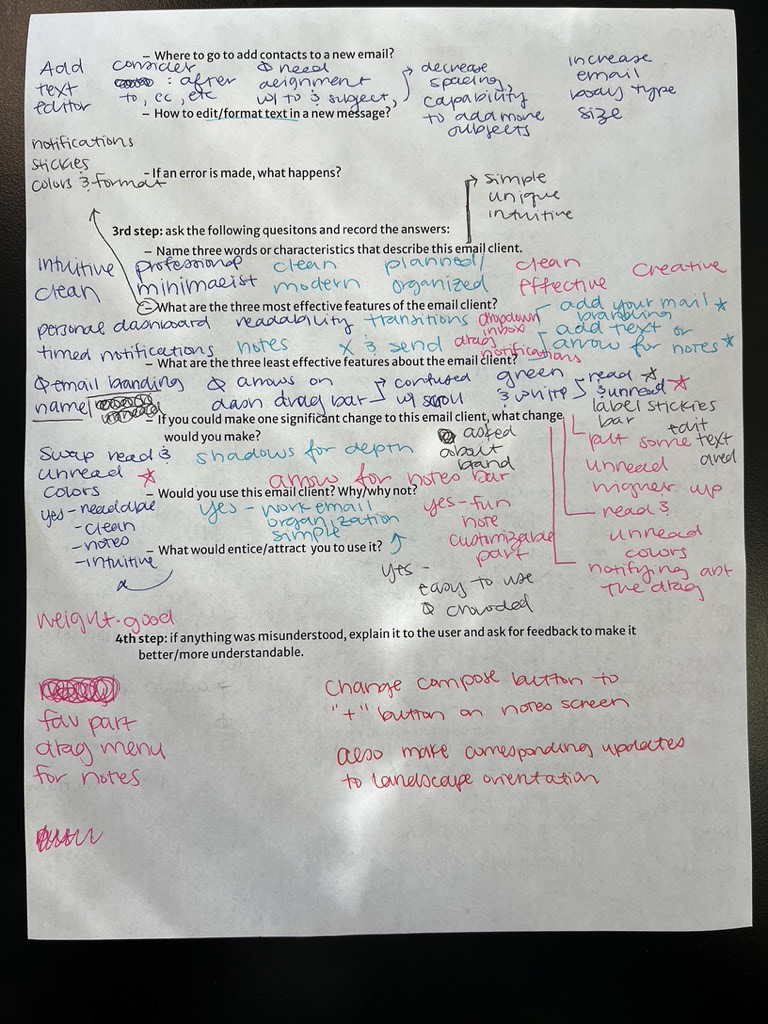 – Where to go to add contacts to a new email?
Add text editor
consider : after to, cc, etc
Φ need alignment w/ to & subject,
decrease spacing, capability to add more subjects
increase email body type size
– How to edit/format text in a new message?
notifications
stickies
colors & format
– If an error is made, what happens?
simple
unique
intuitive
3rd step: ask the following quesitons and record the answers:
– Name three words or characteristics that describe this email client.
intuitive professional clean planned/ clean creative
clean minimalist modern organized effective
– What are the three most effective features of the email client?
personal dashboard readability transitions dropdown inbox add your mail branding *
timed notifications notes X & send drag notifications add text or arrow for notes *
– What are the three least effective features about the email client?
Φ email branding name
Φ arrows on dash drag bar → confused w/ scroll
green & white read & unread
label stickies bar
– If you could make one significant change to this email client, what change would you make?
Swap read & unread colors
shadows for depth
asked about brand
arrow for notes bar
put some text
edit
unread higher up
read & unread colors
notifying abt the drag
– Would you use this email client? Why/why not?
yes - readable
- clean
- notes
- intuitive
yes - work email organization simple
yes - fun note customizable part
yes - easy to use Φ crowded
– What would entice/attract you to use it?
weight - good
4th step: if anything was misunderstood, explain it to the user and ask for feedback to make it
better/more understandable.
fav part
drag menu
for notes
change compose button to
"+" button on notes screen
also make corresponding updates
to landscape orientation